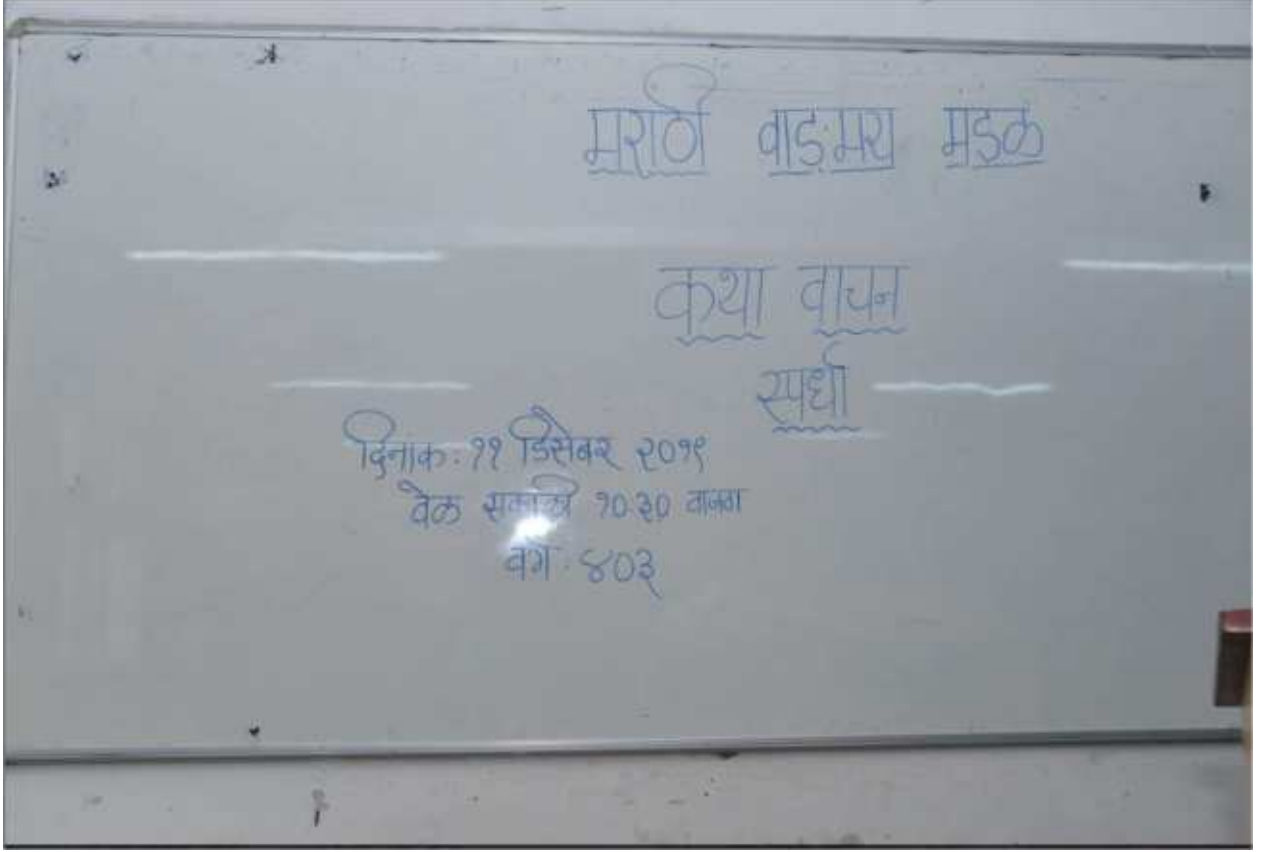 मराठी वाङ:मय मडळ
कथा वाचन
स्पर्धा
दिनाक: ११ डिसेबर २०१९
वेळ सकाळी १०.३० वाजता
वर्ग: ४०३